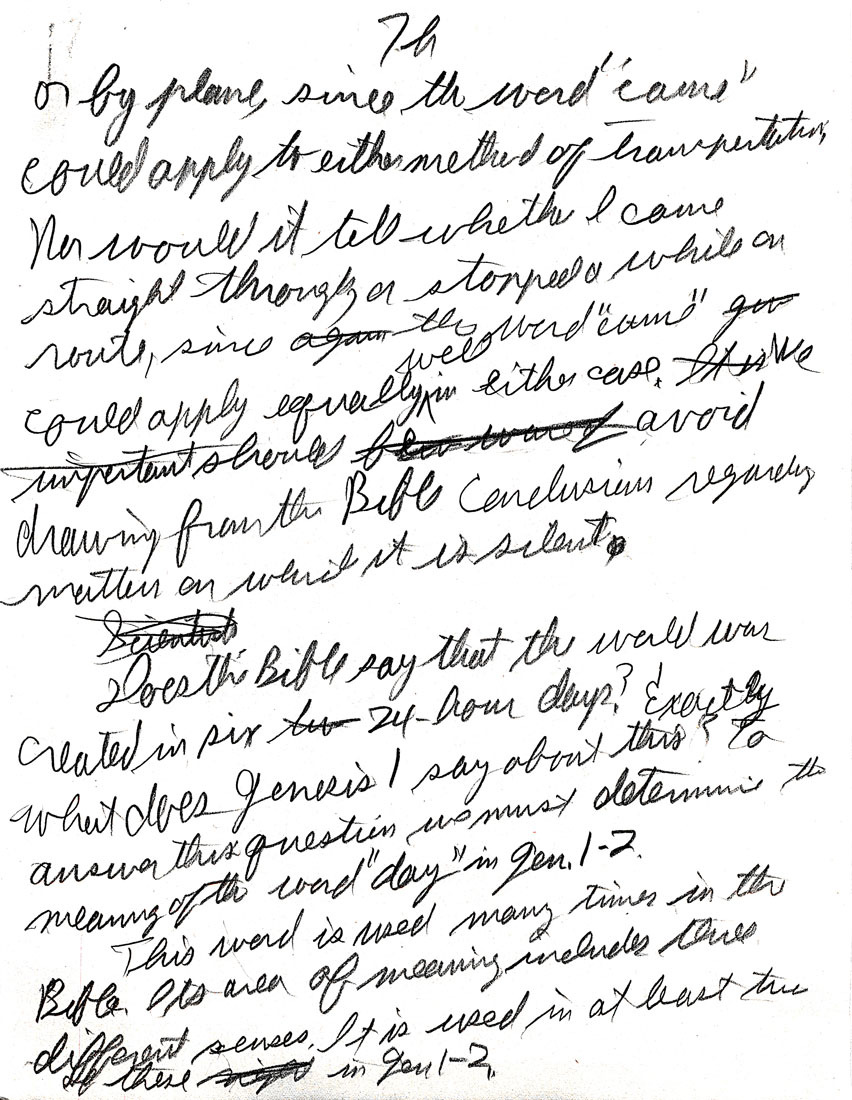 7h
or by plane, since the word "came"
could apply to either method of transportation,
Nor would it tell whether I came
straight through or stopped a while en
route, since again the word "came"
could apply equally well in either case. It is We
important should avoid
drawing from the Bible conclusions regarding
matters on which it is silent.
Scientists
Does the Bible say that the world was
created in six 24-hour days? Exactly
what does Genesis 1 say about this? To
answer this question we must determine the
meaning of the word "day" in Gen. 1-2.
This word is used many times in the
Bible. Its area of meaning includes three
different senses. It is used in at least two
of these in Gen 1-2.